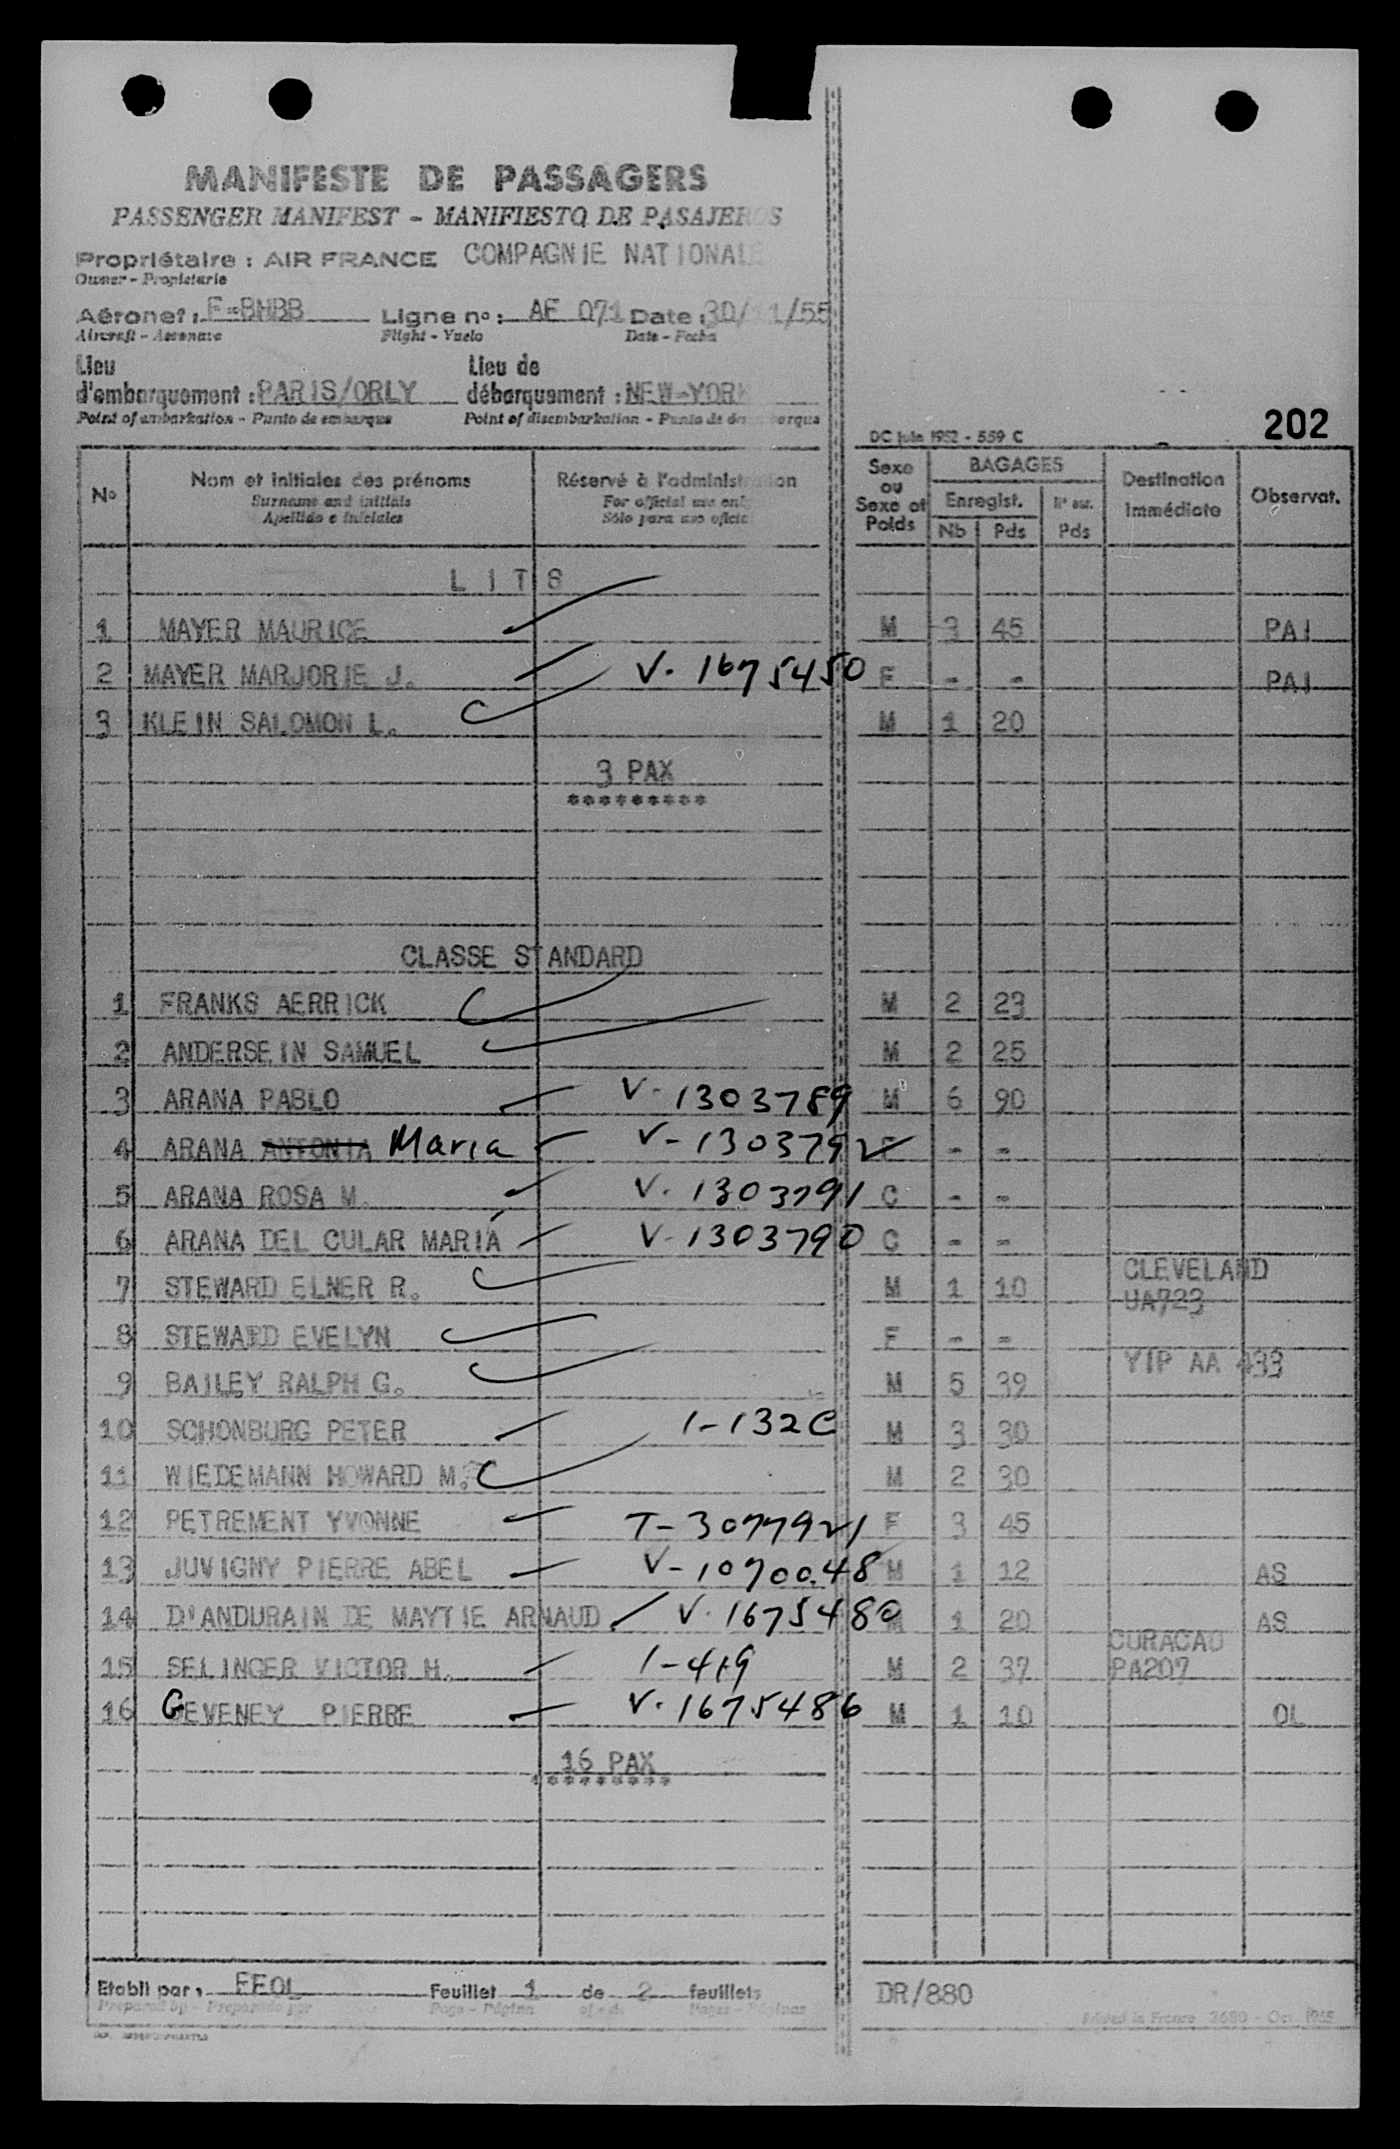 MANIFESTE DE PASSAGERS
PASSENGER MANIFEST - MANIFIESTO DE PASAJEROS
Propriétaire : AIR FRANCE COMPAGNIE NATIONALE
Owner - Propietario
Aéronef : F-BHBB Ligne no : AF 071 Date : 30/11/55
Aircraft - Aeronave Flight - Vuelo Date - Fecha
Lieu Lieu de
d'embarquement : PARIS/ORLY débarquement : NEW-YORK
Point of embarkation - Punto de embarque Point of disembarkation - Punto de desembarque
DC juin 1952 - 559 C 202
No Nom et initiales des prénoms Réservé à l'administration Sexe ou Sexe et Poids BAGAGES Destination Immédiate Observat.
Surname and initials For official use only Enregist.
Apellido e iniciales Sólo para uso oficial Nb Pds Pds
LITS
1 MAYER MAURICE M 3 45 PAI
2 MAYER MARJORIE J. V. 1675450 F - - PAI
3 KLEIN SALOMON L. M 1 20
3 PAX
*********
CLASSE STANDARD
1 FRANKS AERRICK M 2 23
2 ANDERSEIN SAMUEL M 2 25
3 ARANA PABLO V-1303789 M 6 90
4 ARANA ANTONIA Maria V-1303792 F - -
5 ARANA ROSA M. V. 1303791 C - -
6 ARANA DEL CULAR MARIA V-1303790 C - -
7 STEWARD ELNER R. M 1 10 CLEVELAND
UA723
8 STEWARD EVELYN F - -
9 BAILEY RALPH G. M 5 39 YIP AA 433
10 SCHONBURG PETER 1-132C M 3 30
11 WIEDEMANN HOWARD M. M 2 30
12 PETREMENT YVONNE T-3077921 F 3 45
13 JUVIGNY PIERRE ABEL V-1070048 M 1 12 AS
14 D'ANDURAIN DE MAYTIE ARNAUD V. 1675480 M 1 20 AS
15 SELINGER VICTOR H. 1-419 M 2 37 CURACAO
PA207
16 GEVENEY PIERRE V. 1675486 M 1 10 OL
16 PAX
*********
Etabli par : FEOL Feuillet 1 de 2 feuillets DR/880
Prepared by - Preparado por Page - Página of - de Pages - Páginas Printed in France 2680 - Oct 1955